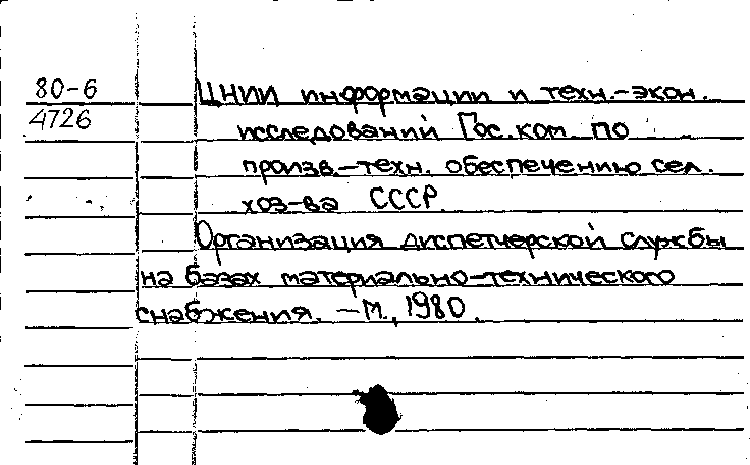 80-6
4726
ЦНИИ информации и техн.-экон.
исследований Гос. ком. по
произв.-техн. обеспечению сел.
хоз-ва СССР.
Организация диспетчерской службы
на базах материально-технического
снабжения. - М., 1980.